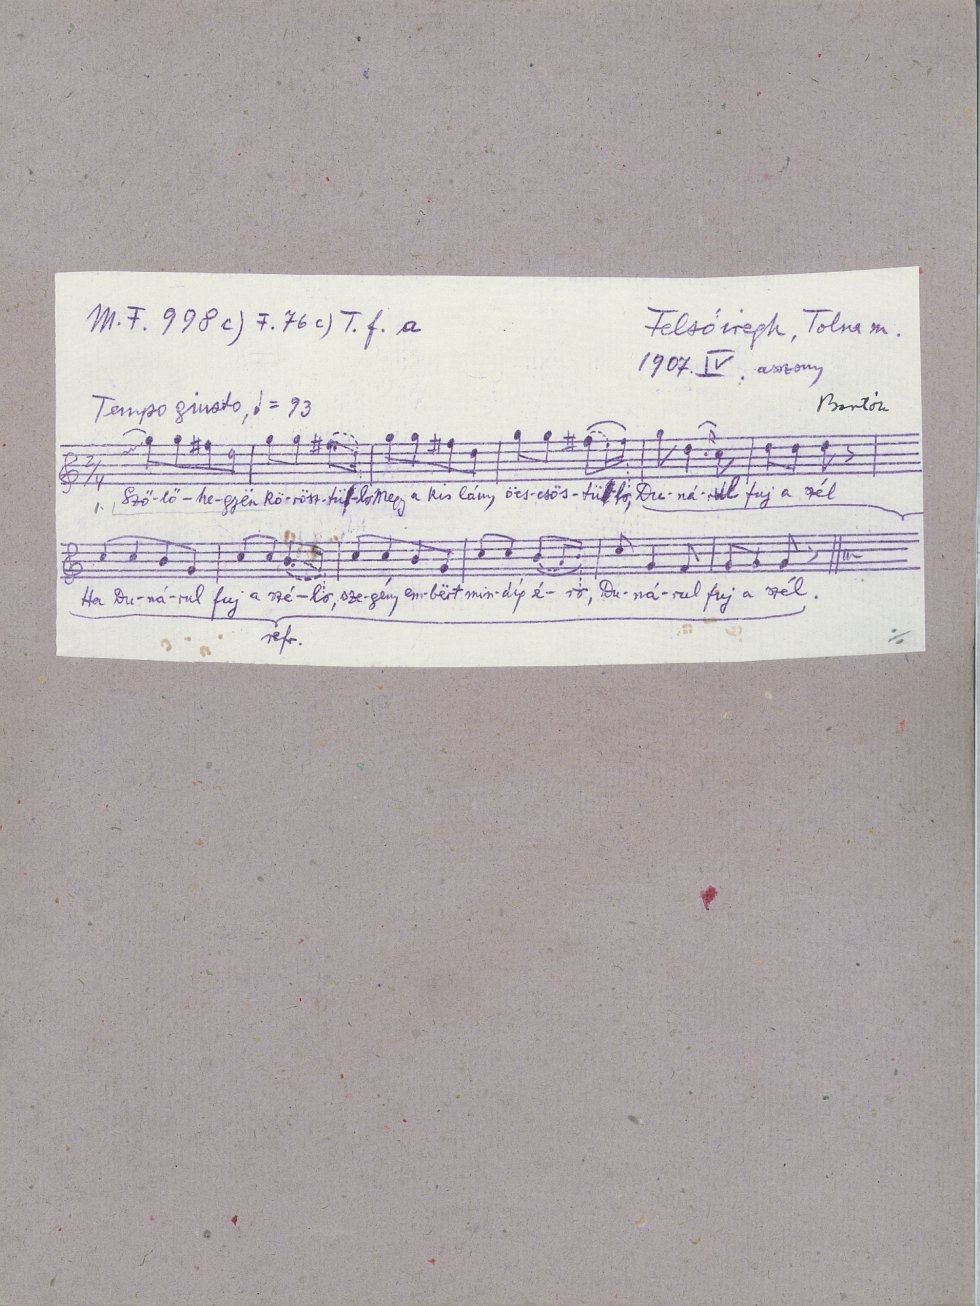 M.F. 998 c) F. 76 c) T. f. a
Felsőiregh, Tolna m.
1907. IV. asszony
Bartók
Tempo giusto, ♩ = 93
2/4
1. Sző-lő-he-gyën Kö-rösz-tül Mëgy a kis lány öcs-csös-tül Du-ná-rul fuj a szél
Ha Du-ná-rul fuj a szé-lö, sze-gény em-bërt min-dig é-rö, Du-ná-rul fuj a szél.
refr.